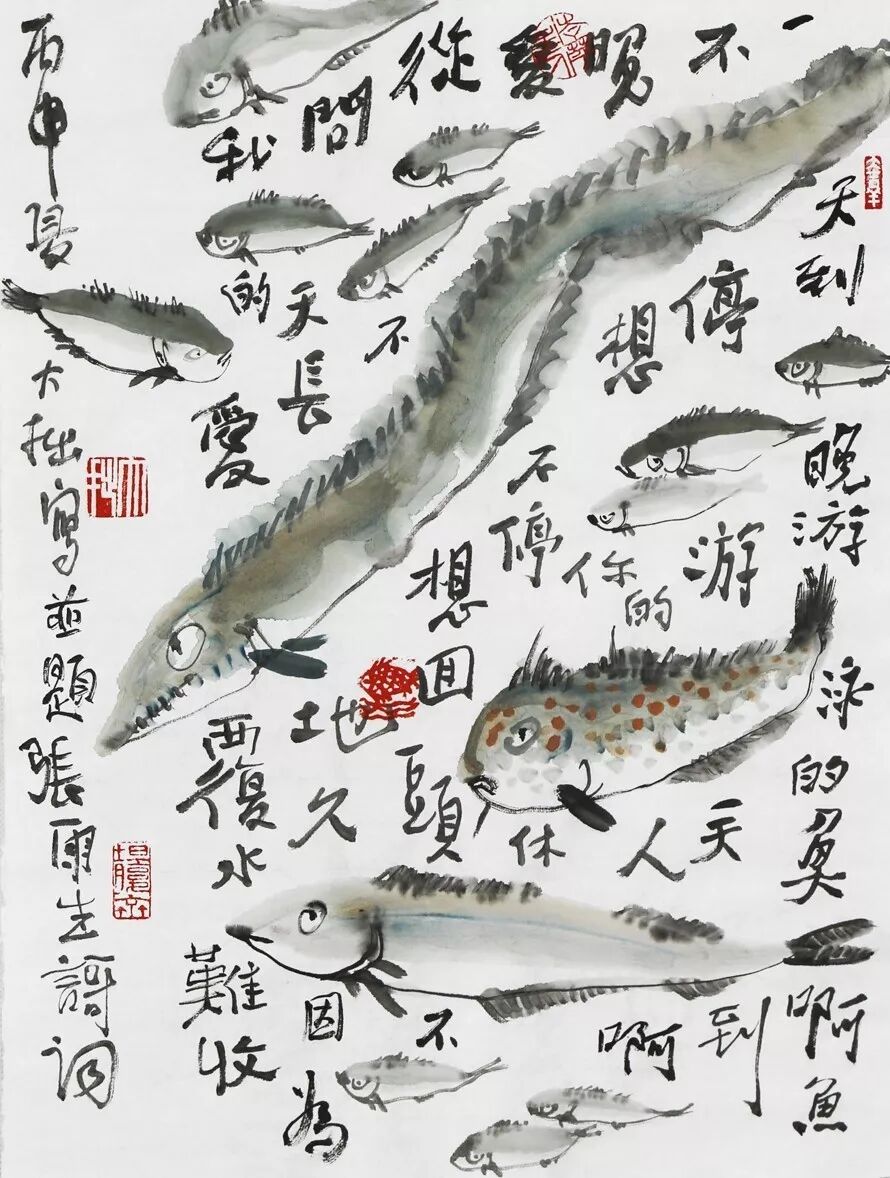 一天到晚游泳的魚啊魚
不停游天到
晚想你的人啊
愛不停休
從不想回頭不
問天長地久因為
我的愛覆水難收
丙申夏大拙寫並題張雨生謌词